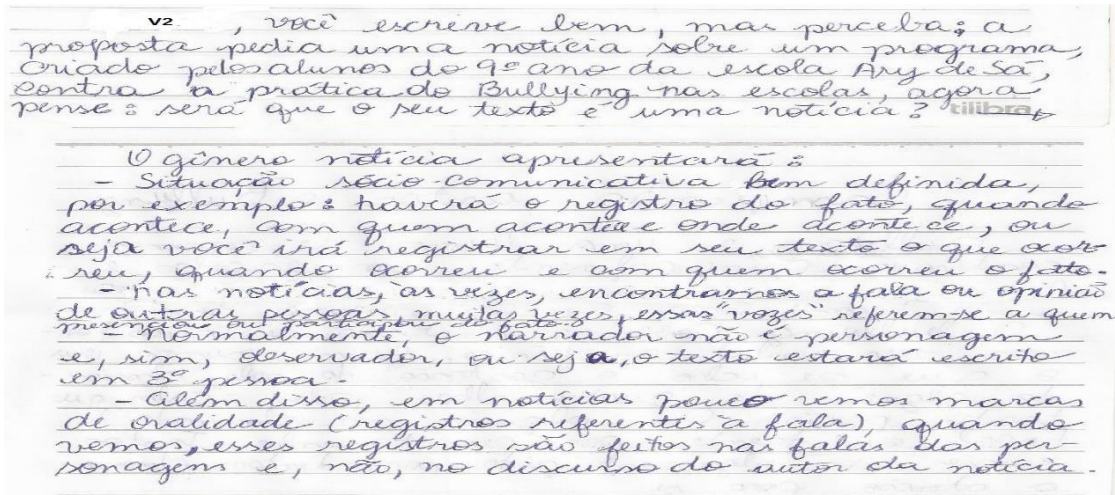 V2 , você escreve bem, mas perceba: a
proposta pedia uma notícia sobre um programa,
criado pelos alunos do 9º ano da escola Ary de Sá,
contra a prática do Bullying nas escolas, agora
pense: será que o seu texto é uma notícia? tilibra
O gênero notícia apresentará:
- Situação sócio-comunicativa bem definida,
por exemplo: haverá o registro do fato, quando
acontece, com quem acontece e onde acontece, ou
seja você irá registrar em seu texto o que ocor-
reu, quando ocorreu e com quem ocorreu o fato.
- Nas notícias, às vezes, encontramos a fala ou opinião
de outras pessoas, muitas vezes, essas "vozes" referem-se a quem
presenciou ou participou do fato.
- Normalmente, o narrador não é personagem
e, sim, observador, ou seja, o texto estará escrito
em 3º pessoa.
- Além disso, em notícias pouco vemos marcas
de oralidade (registros referentes à fala), quando
vemos, esses registros são feitos nas falas das per-
sonagens e, não, no discurso do autor da notícia.